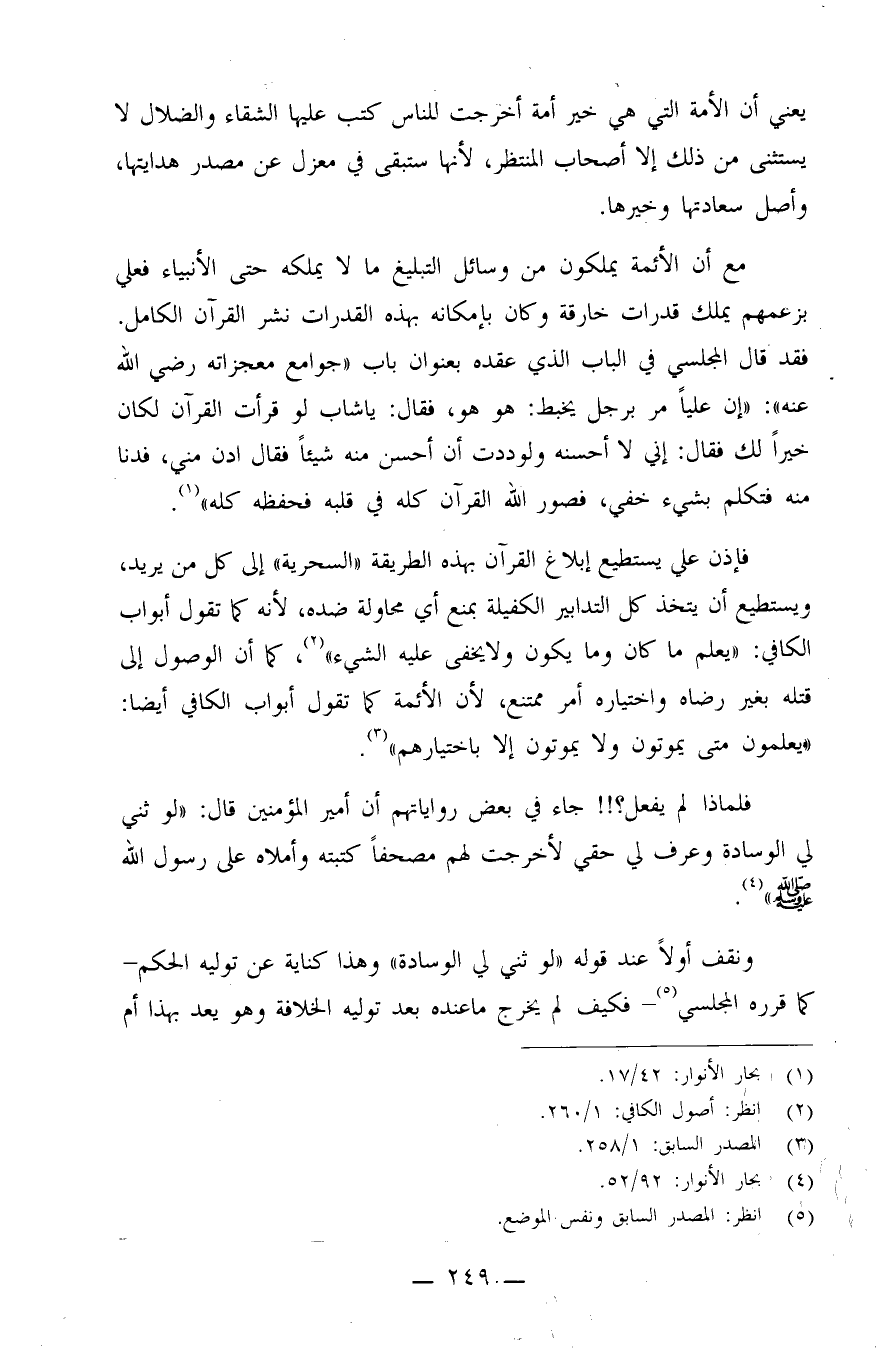 يعني أن الأمة التي هي خير أمة أخرجت للناس كتب عليها الشقاء والضلال لا
يستثنى من ذلك إلا أصحاب المنتظر، لأنها ستبقى في معزل عن مصدر هدايتها،
وأصل سعادتها وخيرها.
مع أن الأئمة يملكون من وسائل التبليغ ما لا يملكه حتى الأنبياء فعلي
بزعمهم يملك قدرات خارقة وكان بإمكانه بهذه القدرات نشر القرآن الكامل.
فقد قال المجلسي في الباب الذي عقده بعنوان باب «جوامع معجزاته رضي الله
عنه»: «إن علياً مر برجل يخبط: هو هو، فقال: ياشاب لو قرأت القرآن لكان
خيراً لك فقال: إني لا أحسنه ولوددت أن أحسن منه شيئاً فقال ادن مني، فدنا
منه فتكلم بشيء خفي، فصور الله القرآن كله في قلبه فحفظه كله»(١).
فإذن علي يستطيع إبلاغ القرآن بهذه الطريقة «السحرية» إلى كل من يريد،
ويستطيع أن يتخذ كل التدابير الكفيلة بمنع أي محاولة ضده، لأنه كما تقول أبواب
الكافي: «يعلم ما كان وما يكون ولايخفى عليه الشيء»(٢)، كما أن الوصول إلى
قتله بغير رضاه واختياره أمر ممتنع، لأن الأئمة كما تقول أبواب الكافي أيضا:
«يعلمون متى يموتون ولا يموتون إلا باختيارهم»(٣).
فلماذا لم يفعل؟!! جاء في بعض رواياتهم أن أمير المؤمنين قال: «لو ثني
لي الوسادة وعرف لي حقي لأخرجت لهم مصحفاً كتبته وأملاه على رسول الله
ﷺ»(٤).
ونقف أولاً عند قوله «لو ثني لي الوسادة» وهذا كناية عن توليه الحكم–
كما قرره المجلسي(٥)– فكيف لم يخرج ماعنده بعد توليه الخلافة وهو يعد بهذا أم
(١) بحار الأنوار: ١٧/٤٢.
(٢) انظر: أصول الكافي: ٢٦٠/١.
(٣) المصدر السابق: ٢٥٨/١.
(٤) بحار الأنوار: ٥٢/٩٢.
(٥) انظر: المصدر السابق ونفس الموضع.
— ٢٤٩ —